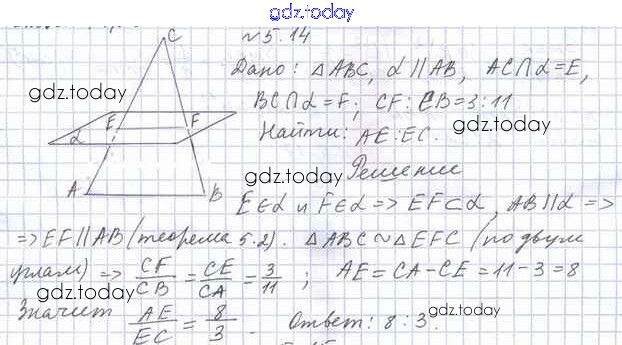 gdz.today
№5.14
C
Дано: △ABC, α∥AB, AC∩α=E,
gdz.today
BC∩α=F; CF:CB=3:11
gdz.today
E F
α
Найти: AE:EC.
gdz.today
Решение
A B
E∈α и F∈α => EF⊂α, AB∥α =>
=> EF∥AB (теорема 5.2). △ABC~△EFC (по двум
углам) => CF/CB = CE/CA = 3/11 ; AE=CA-CE=11-3=8
gdz.today
gdz.today
Значит AE/EC = 8/3. Ответ: 8:3.